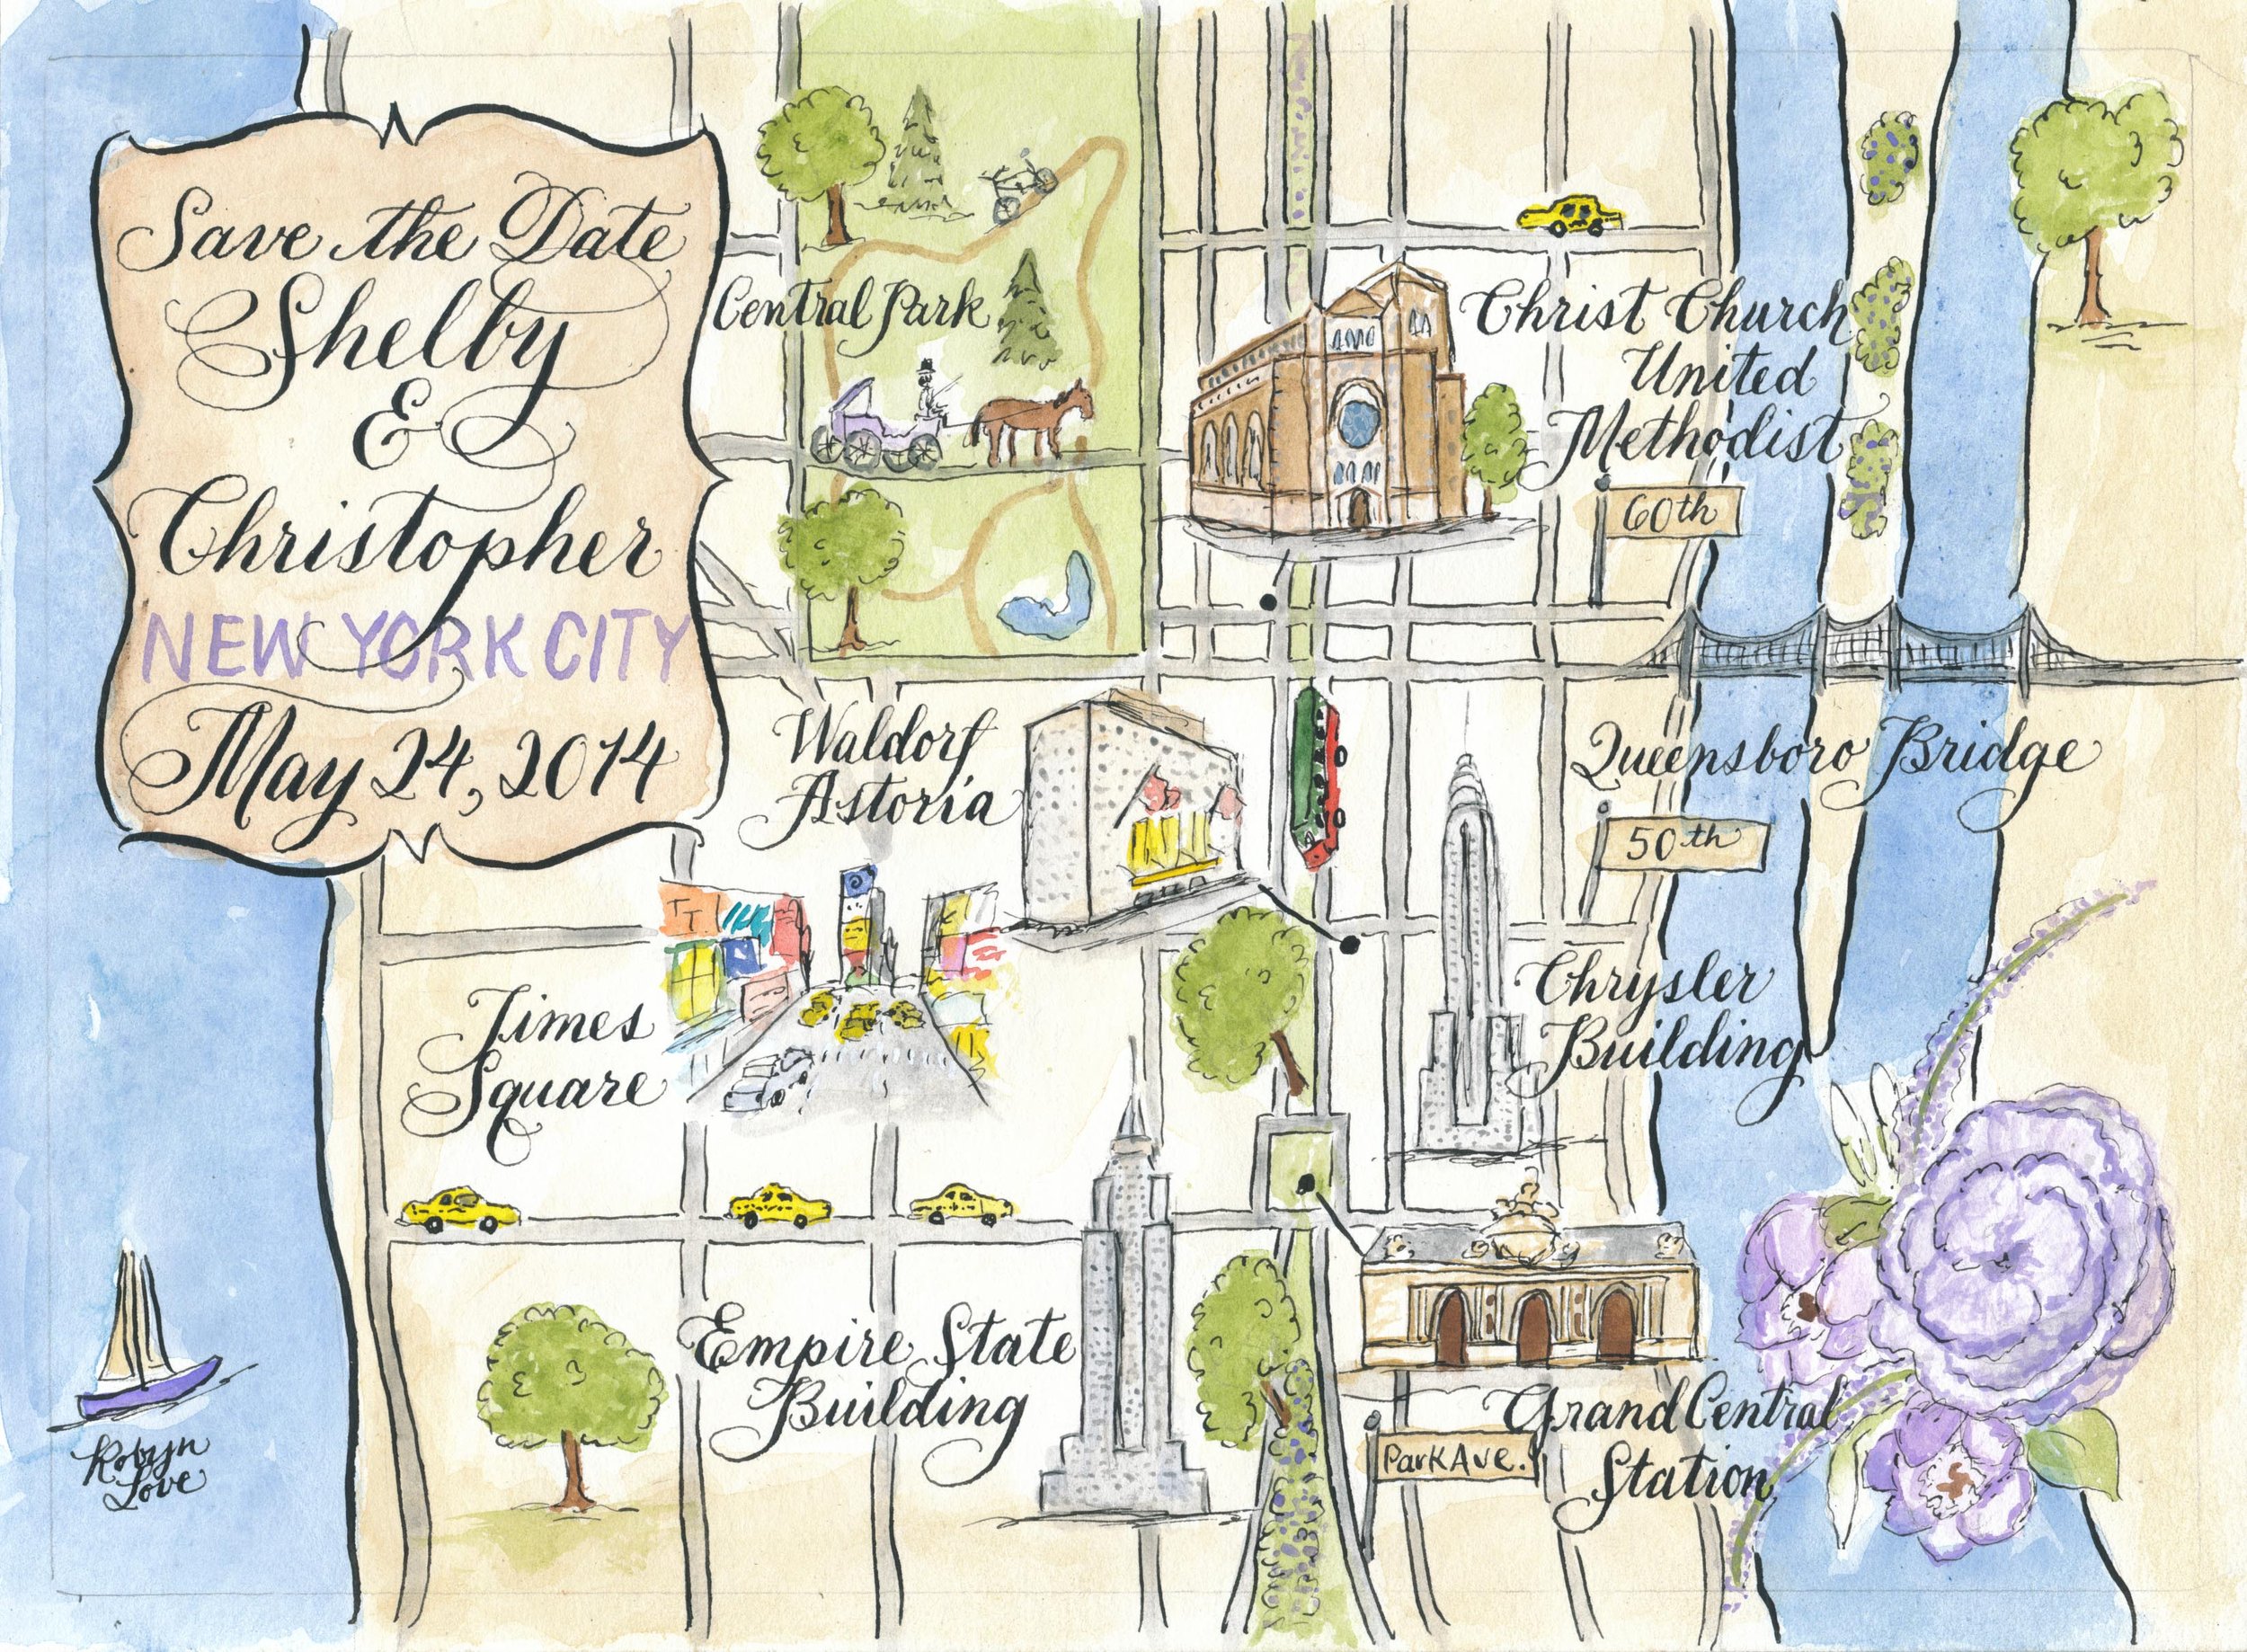 Save the Date
Shelby
&
Christopher
NEW YORK CITY
May 24, 2014
Central Park
Christ Church
United
Methodist
60th
Waldorf
Astoria
Queensboro Bridge
50th
Times
Square
Chrysler
Building
Empire State
Building
Grand Central
Station
Park Ave.
Robyn
Love